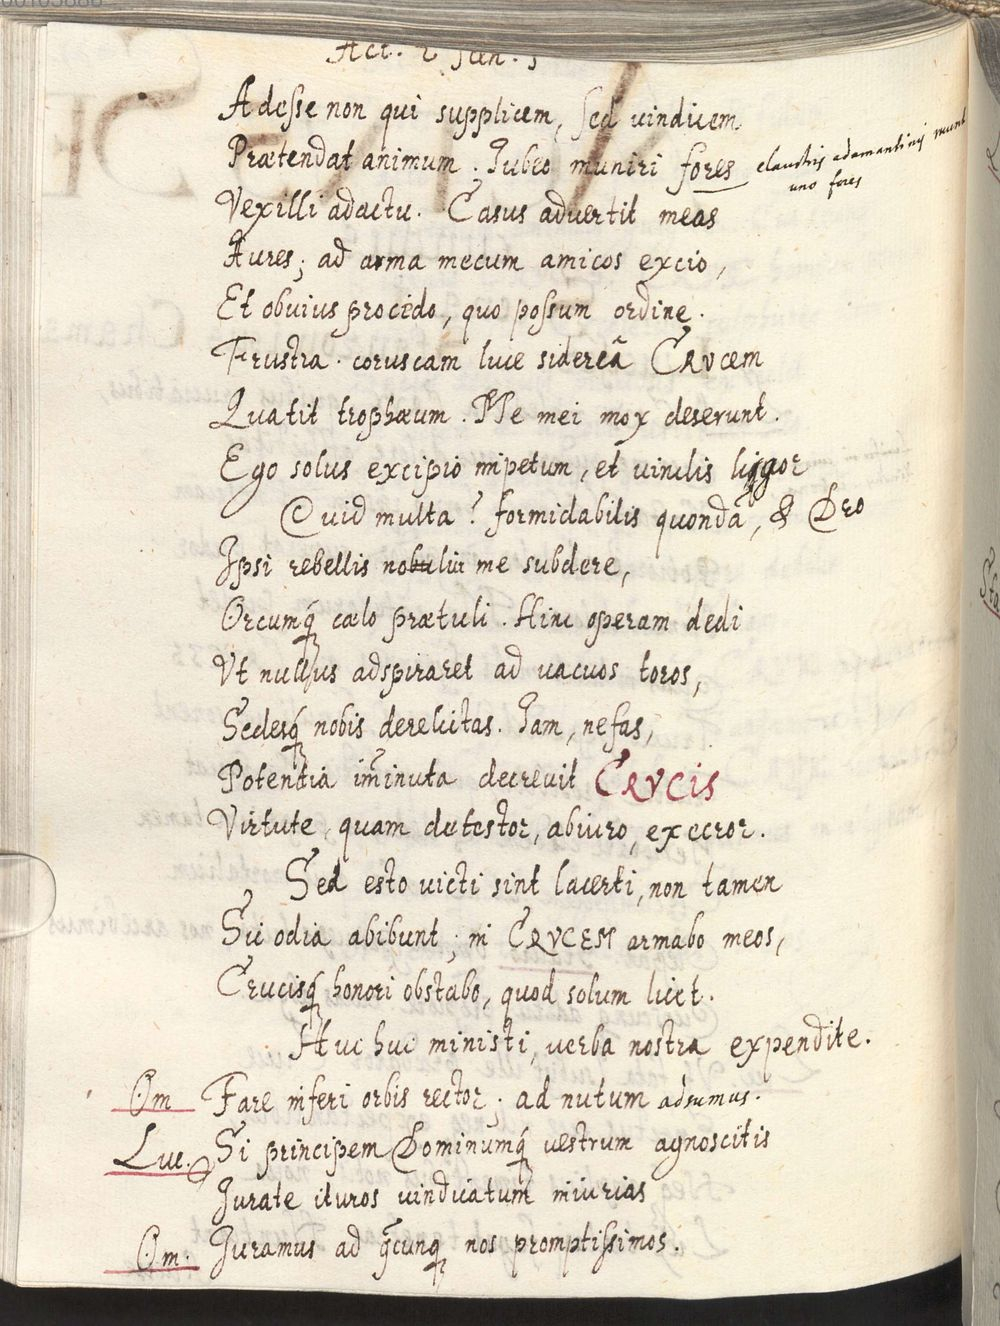 Act. 2 Scen. 3
Adesse non qui supplicem, sed vindicem
Prætendat animum. Jubeo muniri fores claustris adamantinis muni
uno fores
Vexilli adactu. Casus advertit meas
Aures; ad arma mecum amicos excio,
Et obvius procedo, quo possum ordine.
Frustra. coruscam luce sidereâ CRVcem
Quatit trophæum. Me mei mox deserunt.
Ego solus excipio impetum, et vinclis ligor
Quid multa? formidabilis quondã, & Deo
Ipsi rebellis nolui me subdere,
Orcumq́ cælo prætuli. Hinc operam dedi
Vt nullus adspiraret ad vacuos toros,
Sedesq́ nobis derelictas. Jam, nefas,
Potentia im̃inuta decrevit CRVCIS
Virtute, quam detestor, abiuro, execror.
Sed esto victi sint lacerti, non tamen
Sic odia abibunt; in CRVCEM armabo meos,
Crucisq́ honori obstabo, quod solum licet.
Huc huc ministi, verba nostra expendite.
Om Fare inferi orbis rector; ad nutum adsumus.
Luc. Si principem Dominumq́ vestrum agnoscitis
Jurate ituros vindicatum iniurias
Om. Juramus ad q̃cunq nos promptissimos.